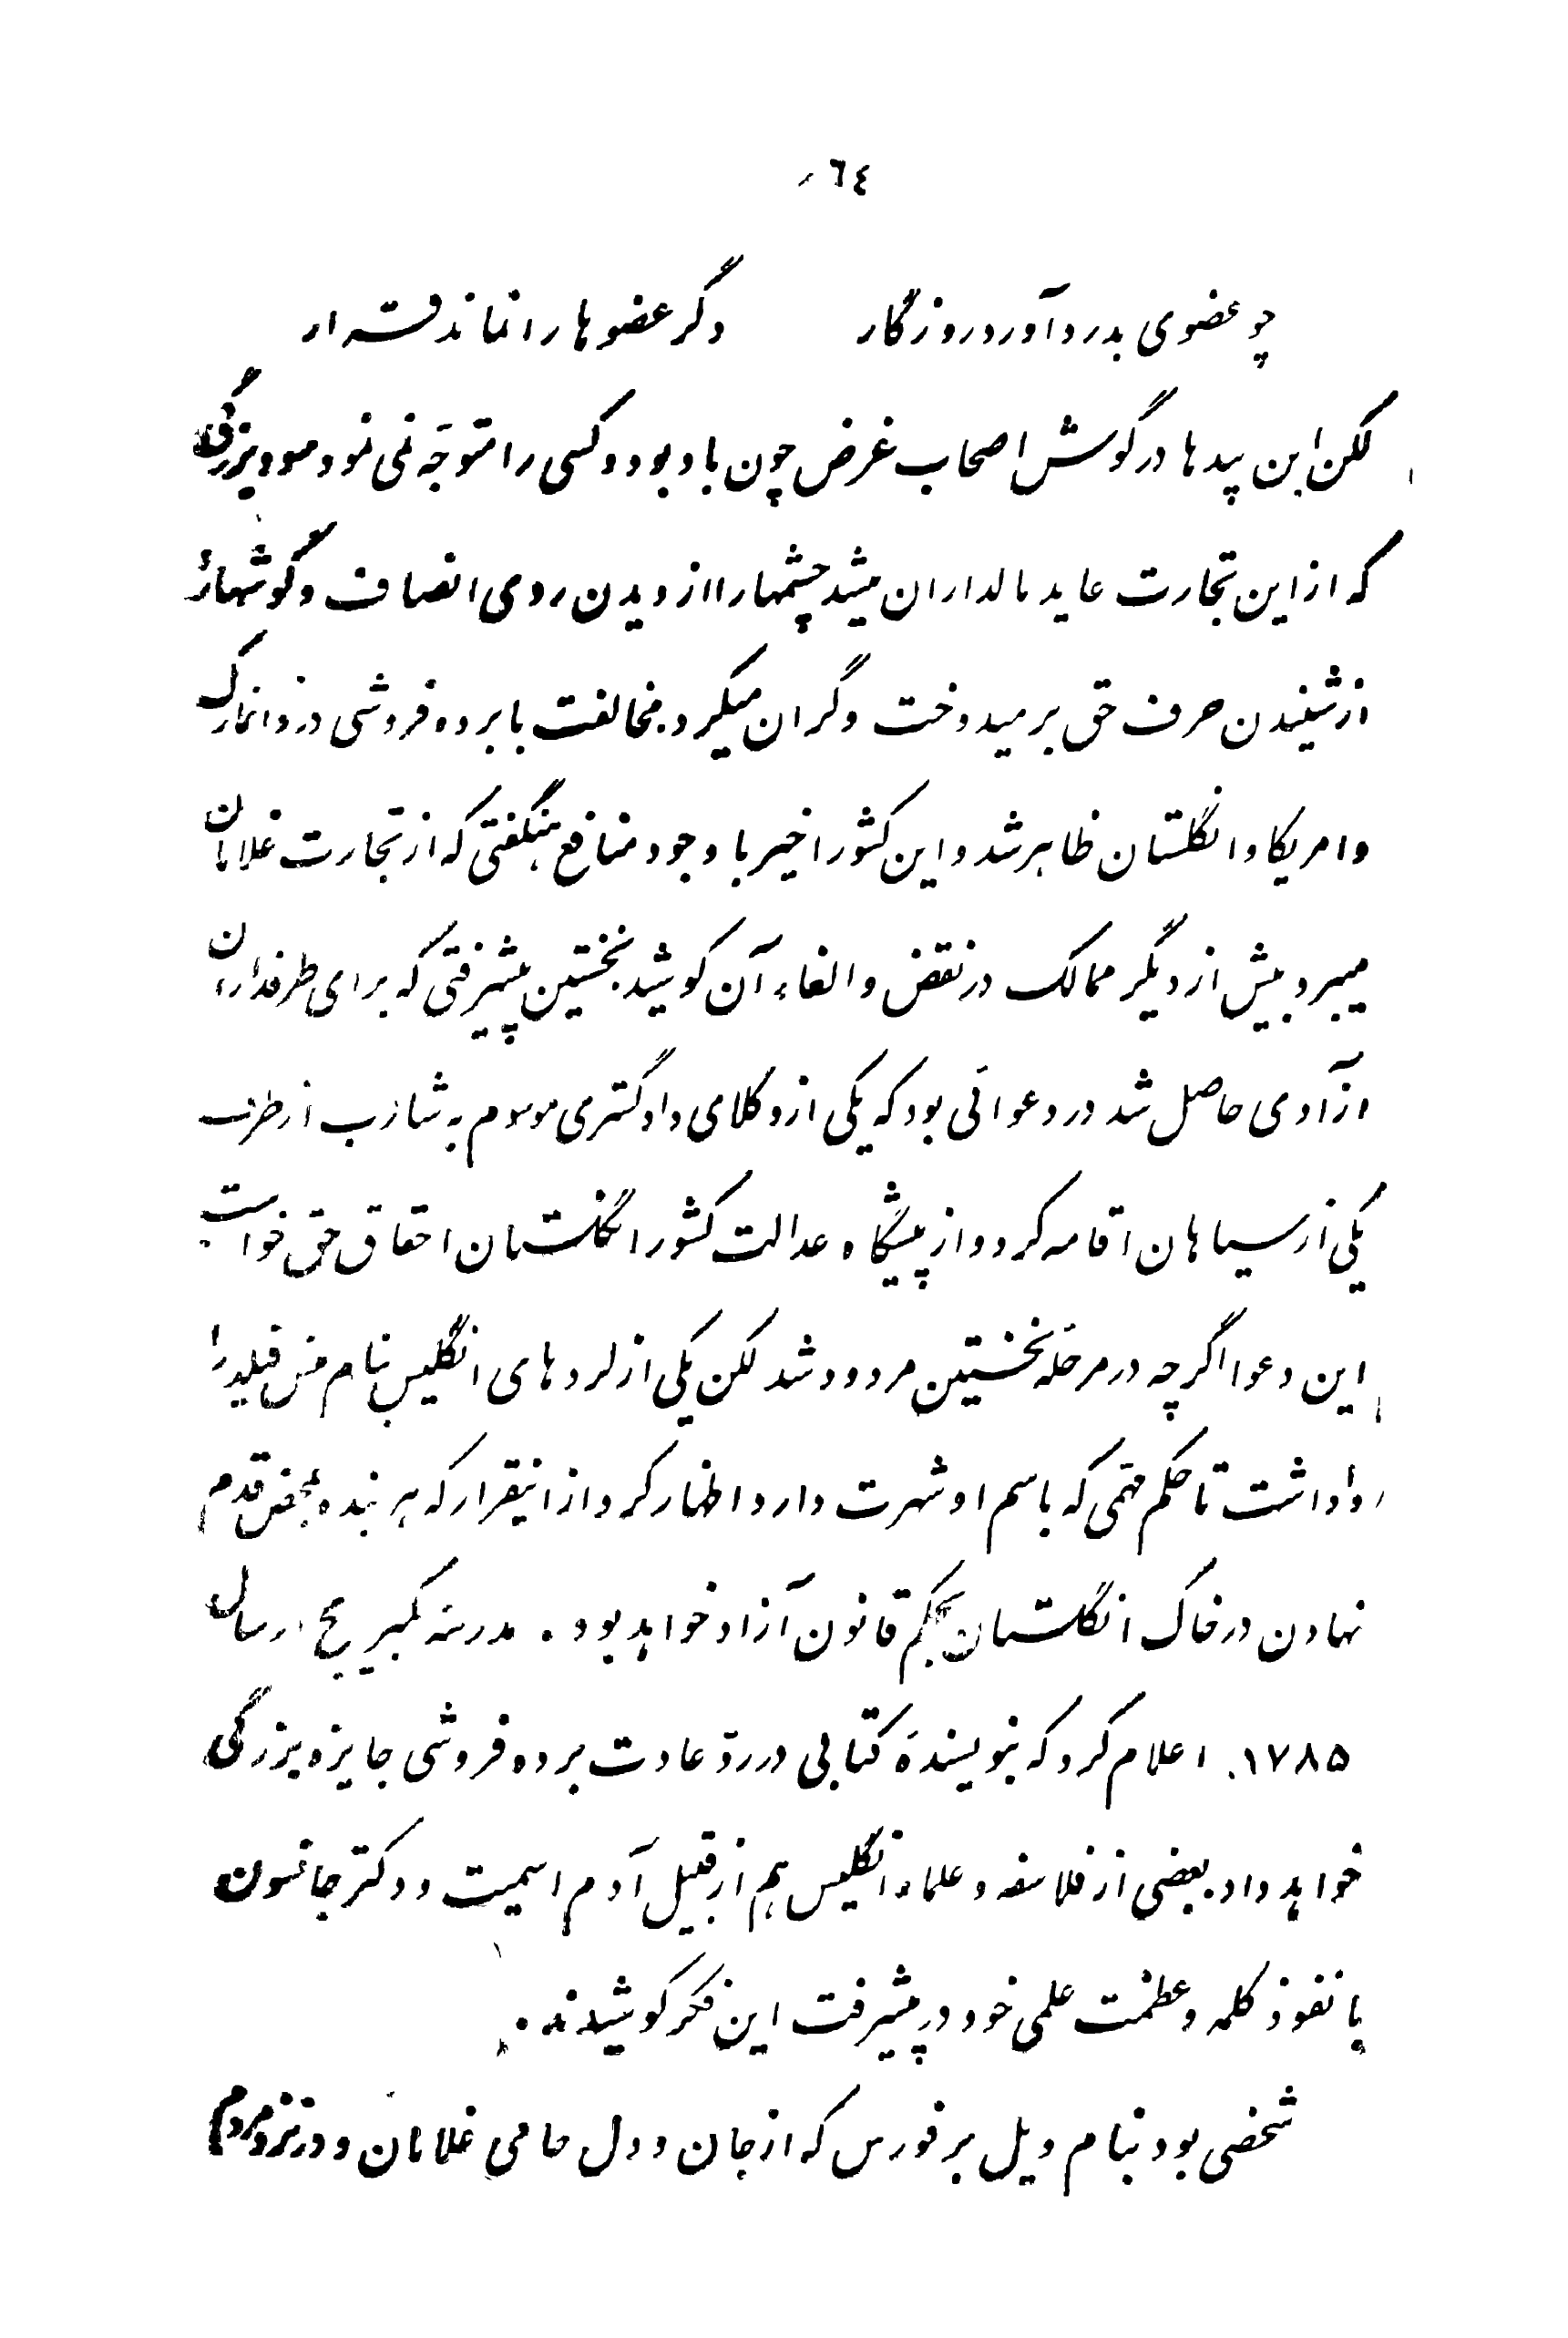 ٦٤
چو عضوی بدرد آورد روزگار دگر عضوها را نماند قرار
لکن این پندها در گوش اصحاب غرض چون باد بود و کسی را متوجّه نمی نمود سود بزرگی
که از این تجارت عاید مالداران میشد چشمها را از دیدن روی انصاف و گوشها را
از شنیدن حرف حق برمیدوخت و گران میکرد. مخالفت با برده فروشی در دانمارک
و امریکا و انگلستان ظاهر شد و این کشور اخیر با وجود منافع هنگفتی که از تجارت غلامان
میبرد بیش از دیگر ممالک در نقض و الغاء آن کوشید نخستین پیشرفتی که برای طرفداران
آزادی حاصل شد در دعوائی بود که یکی از وکلای دادگستری موسوم به شارپ از طرف
یکی از سیاهان اقامه کرد و از پیشگاه عدالت کشور انگلستان احقاق حق خواست
این دعوا اگر چه در مرحلهٔ نخستین مردود شد لکن یکی از لردهای انگلیس بنام منس فیلد را
واداشت تا حکم حتمی که باسم او شهرت دارد اظهار کرد از اینقرار که هر بنده بمحض قدم
نهادن در خاک انگلستان بحکم قانون آزاد خواهد بود. مدرسهٔ کمبریج در سال
۱۷۸۵ اعلام کرد که بنویسندهٔ کتابی در ردّ عادت برده فروشی جایزه بزرگی
خواهد داد. بعضی از فلاسفه و علماء انگلیس هم از قبیل آدم اسمیت و دکتر جانسون
با نفوذ کلمه و عظمت علمی خود در پیشرفت این فکر کوشیدند.
شخصی بود بنام ویل برفورس که از جان و دل حامی غلامان و در نزد مردم